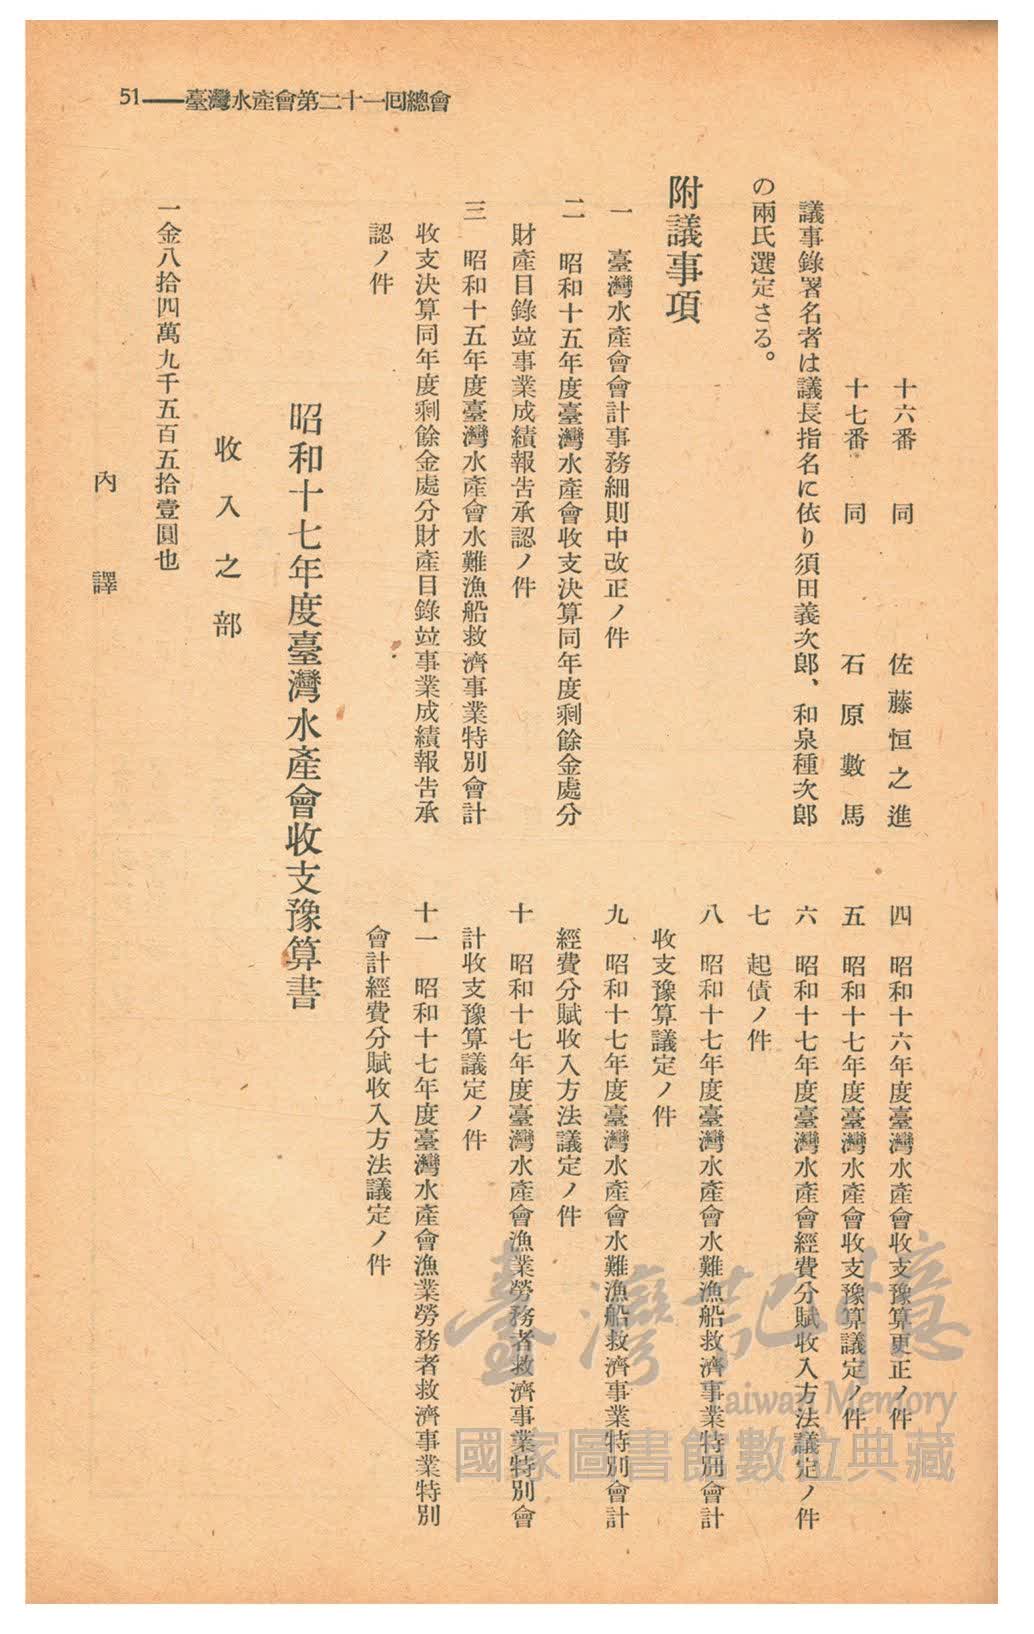 51――臺灣水產會第二十一囘總會
十六番 同 佐藤恒之進
十七番 同 石原數馬
議事錄署名者は議長指名に依り須田義次郎、和泉種次郎
の兩氏選定さる。
附議事項
一 臺灣水產會會計事務細則中改正ノ件
二 昭和十五年度臺灣水產會收支決算同年度剩餘金處分
財產目錄竝事業成績報告承認ノ件
三 昭和十五年度臺灣水產會水難漁船救濟事業特別會計
收支決算同年度剩餘金處分財產目錄竝事業成績報告承
認ノ件
四 昭和十六年度臺灣水產會收支豫算更正ノ件
五 昭和十七年度臺灣水產會收支豫算議定ノ件
六 昭和十七年度臺灣水產會經費分賦收入方法議定ノ件
七 起債ノ件
八 昭和十七年度臺灣水產會水難漁船救濟事業特別會計
收支豫算議定ノ件
九 昭和十七年度臺灣水產會水難漁船救濟事業特別會計
經費分賦收入方法議定ノ件
十 昭和十七年度臺灣水產會漁業勞務者救濟事業特別會
計收支豫算議定ノ件
十一 昭和十七年度臺灣水產會漁業勞務者救濟事業特別
會計經費分賦收入方法議定ノ件
昭和十七年度臺灣水產會收支豫算書
收入之部
一金八拾四萬九千五百五拾壹圓也
內譯
臺灣記憶
Taiwan Memory
國家圖書館數位典藏